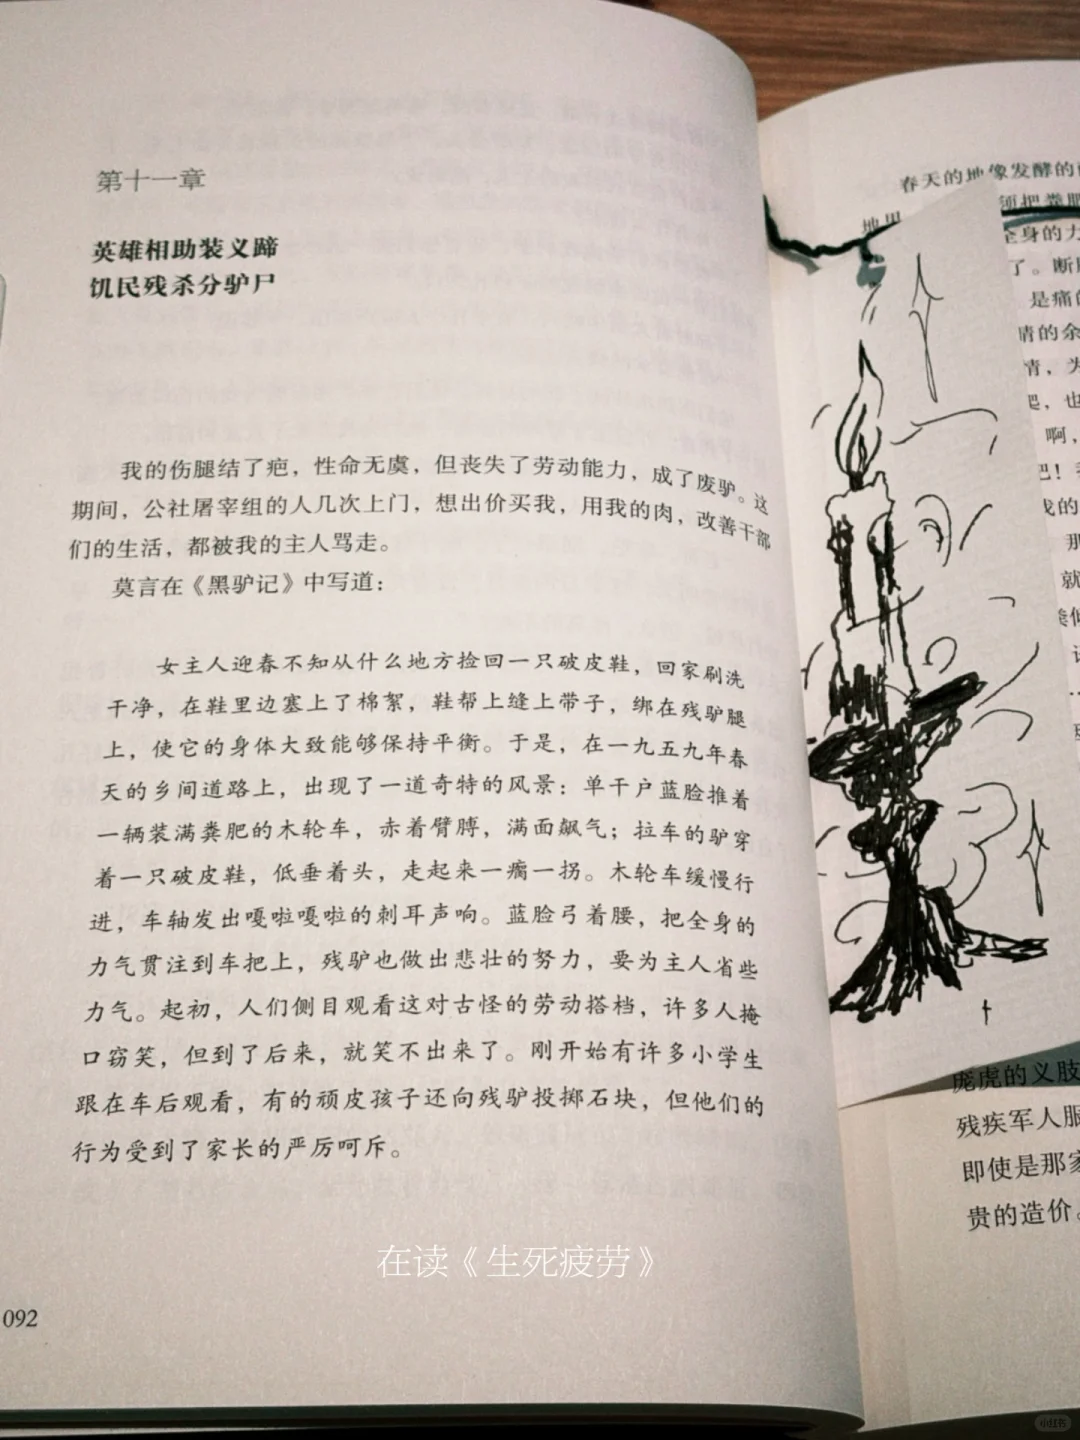 第十一章
英雄相助装义蹄
饥民残杀分驴尸
我的伤腿结了疤，性命无虞，但丧失了劳动能力，成了废驴。这
期间，公社屠宰组的人几次上门，想出价买我，用我的肉，改善干部
们的生活，都被我的主人骂走。
莫言在《黑驴记》中写道：
女主人迎春不知从什么地方捡回一只破皮鞋，回家刷洗
干净，在鞋里边塞上了棉絮，鞋帮上缝上带子，绑在残驴腿
上，使它的身体大致能够保持平衡。于是，在一九五九年春
天的乡间道路上，出现了一道奇特的风景：单干户蓝脸推着
一辆装满粪肥的木轮车，赤着臂膊，满面飙气；拉车的驴穿
着一只破皮鞋，低垂着头，走起来一瘸一拐。木轮车缓慢行
进，车轴发出嘎啦嘎啦的刺耳声响。蓝脸弓着腰，把全身的
力气贯注到车把上，残驴也做出悲壮的努力，要为主人省些
力气。起初，人们侧目观看这对古怪的劳动搭档，许多人掩
口窃笑，但到了后来，就笑不出来了。刚开始有许多小学生
跟在车后观看，有的顽皮孩子还向残驴投掷石块，但他们的
行为受到了家长的严厉呵斥。
在读《生死疲劳》
092
春天的地像发酵的
地里
须把粪肥
全身的力
了。断
是痛的
睛的余
情，为
爬，也
啊，
吧！
我的
那
就
类似
庞虎的义肢
残疾军人服
即使是那家
贵的造价。
小红书